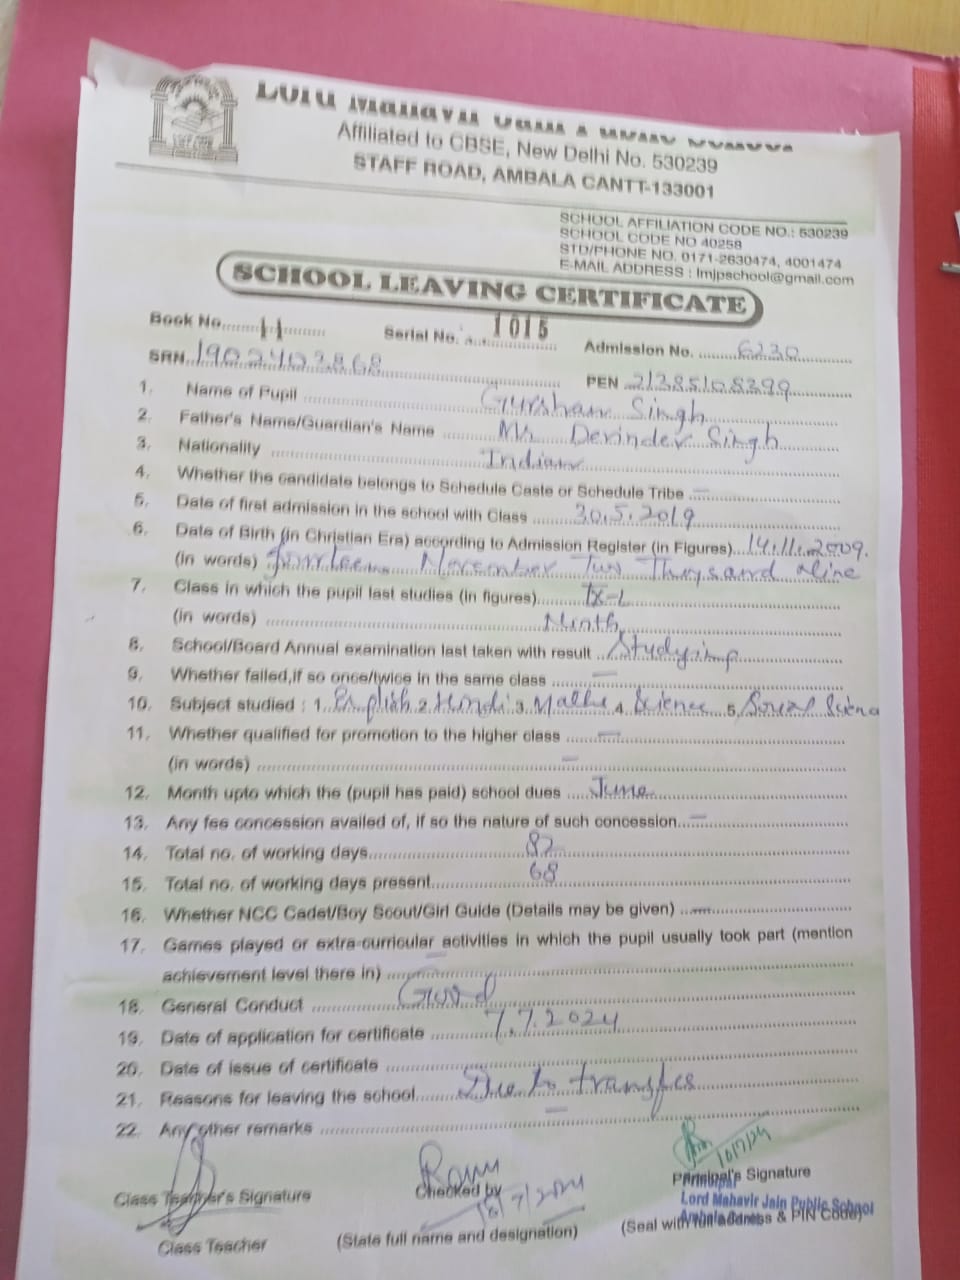 Affiliated to CBSE, New Delhi No. 530239
STAFF ROAD, AMBALA CANTT-133001
SCHOOL AFFILIATION CODE NO.: 530239
SCHOOL CODE NO 40258
STD/PHONE NO. 0171-2630474, 4001474
E-MAIL ADDRESS : lmjpschool@gmail.com
SCHOOL LEAVING CERTIFICATE
Book No. 11 Serial No. 1015 Admission No. 6230
SRN 1902402868 PEN 21385108399
1. Name of Pupil Gursharn Singh
2. Father's Name/Guardian's Name Mr. Devinder Singh
3. Nationality Indian
4. Whether the candidate belongs to Schedule Caste or Schedule Tribe —
5. Date of first admission in the school with Class 30.5.2019
6. Date of Birth (in Christian Era) according to Admission Register (in Figures) 14.11.2009.
(in words) Fourteen November Two Thousand Nine
7. Class in which the pupil last studies (in figures) IX-L
(in words) Ninth
8. School/Board Annual examination last taken with result Studying
9. Whether failed,if so once/twice in the same class —
10. Subject studied : 1. English 2. Hindi 3. Maths 4. Science 5. Social Science
11. Whether qualified for promotion to the higher class —
(in words) —
12. Month upto which the (pupil has paid) school dues June
13. Any fee concession availed of, if so the nature of such concession —
14. Total no. of working days 82
15. Total no. of working days present 68
16. Whether NCC Cadet/Boy Scout/Girl Guide (Details may be given) —
17. Games played or extra-curricular activities in which the pupil usually took part (mention
achievement level there in) —
18. General Conduct Good
19. Date of application for certificate 7.7.2024
20. Date of issue of certificate
21. Reasons for leaving the school Due to transfer
22. Any other remarks —
10/7/24
Class Teacher's Signature Checked by Principal's Signature
Principal
Lord Mahavir Jain Public School
Class Teacher (State full name and designation) (Seal with full address & PIN Code)